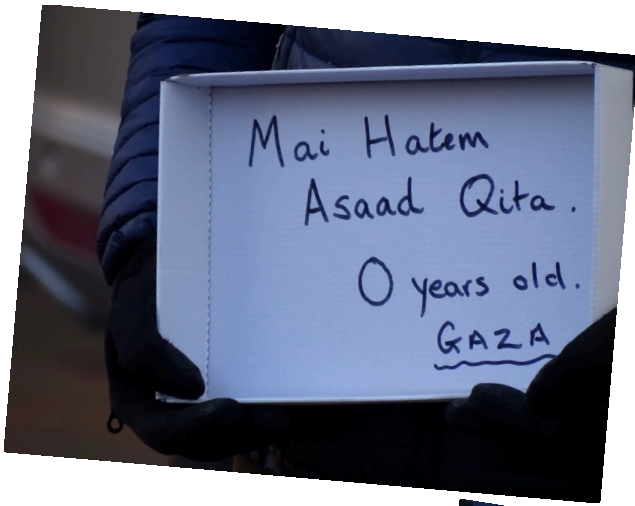 Mai Hatem
Asaad Qita.
0 years old.
GAZA